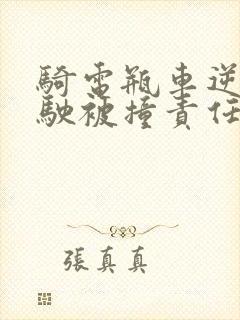 騎電瓶車逆
駛被撞責任
張真真